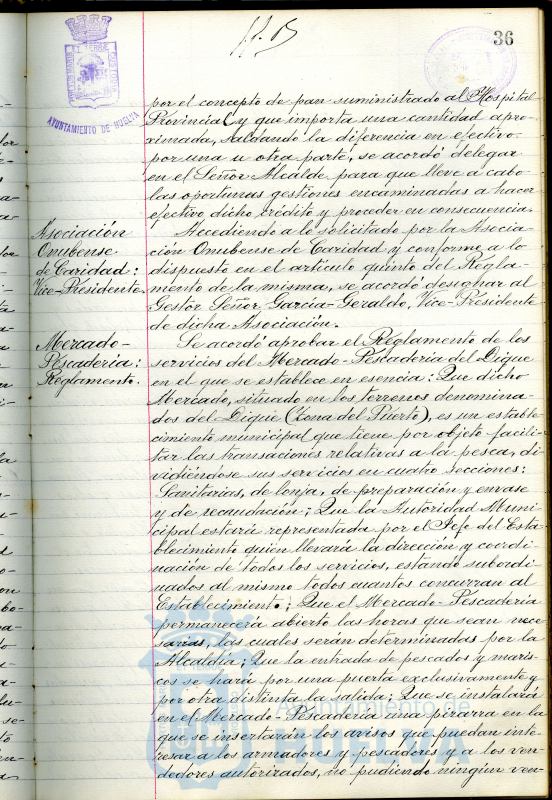 36
AYUNTAMIENTO DE HUELVA
por el concepto de pan suministrado al Hospital
Provincial y que importa una cantidad apro-
ximada, saldando la diferencia en efectivo
por una u otra parte, se acordó delegar
en el Señor Alcalde para que lleve a cabo
las oportunas gestiones encaminadas a hacer
efectivo dicho crédito y proceder en consecuencia.
Asociación
Onubense
de Caridad:
Vice-Presidente.
Accediendo a lo solicitado por la Asocia-
ción Onubense de Caridad y conforme a lo
dispuesto en el artículo quinto del Regla-
mento de la misma, se acordó designar al
Gestor Señor García-Geraldo, Vice-Presidente
de dicha Asociación.
Mercado-
Pescadería:
Reglamento.
Se acordó aprobar el Reglamento de los
servicios del Mercado-Pescadería del Dique
en el que se establece en esencia: Que dicho
Mercado, situado en los terrenos denomina-
dos del Dique (Zona del Puerto), es un estable-
cimiento municipal que tiene por objeto facili-
tar las transaciones relativas a la pesca, di-
vidiéndose sus servicios en cuatro secciones:
Sanitarias, de lonja, de preparación y envase
y de recaudación; Que la Autoridad Muni-
cipal estará representada por el Jefe del Esta-
blecimiento quien llevará la dirección y coordi-
nación de todos los servicios, estando subordi-
nados al mismo todos cuantos concurran al
Establecimiento; Que el Mercado-Pescadería
permanecerá abierto las horas que sean nece-
sarias, las cuales serán determinadas por la
Alcaldía; Que la entrada de pescados y maris-
cos se hará por una puerta exclusivamente y
por otra distinta la salida; Que se instalará
en el Mercado-Pescadería una pizarra en la
que se insertarán los avisos que puedan inte-
resar a los armadores y pescadores y a los ven-
dedores autorizados, no pudiendo ningún ven-
Ayuntamiento de
HUELVA